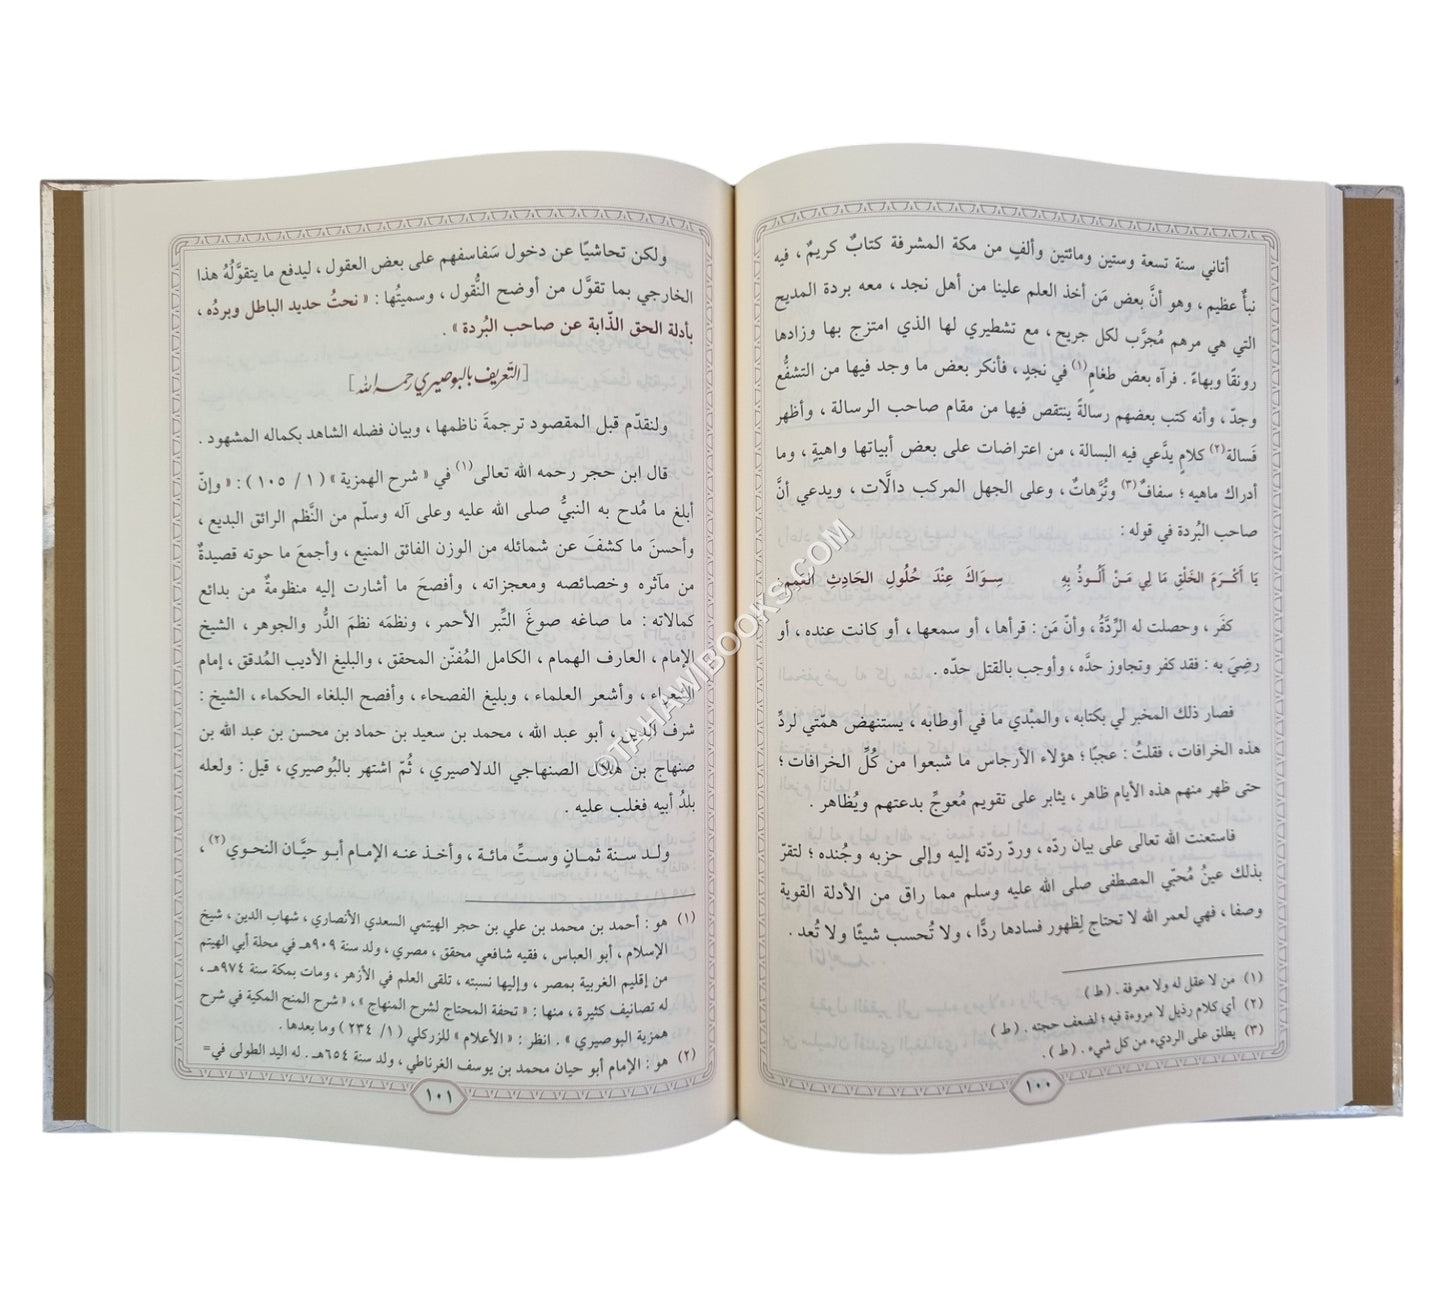 أتاني سنة تسعة وستين ومائتين وألفٍ من مكة المشرفة كتابٌ كريمٌ ، فيه
نبأٌ عظيم ، وهو أنَّ بعض مَن أخذ العلم علينا من أهل نجد ، معه بردة المديح
التي هي مرهم مُجرَّب لكل جريح ، مع تشطيري لها الذي امتزج بها وزادها
رونقًا وبهاءً . فرآه بعض طغامٍ(١) في نجدٍ ، فأنكر بعض ما وجد فيها من التشفُّع
وجدّ ، وأنه كتب بعضهم رسالةً ينتقص فيها من مقام صاحب الرسالة ، وأظهر
فَسالة(٢) كلامٍ يدَّعي فيه البسالة ، من اعتراضات على بعض أبياتها واهيةٍ ، وما
أدراك ماهيه ؛ سفافٌ(٣) وتُرَّهاتٌ ، وعلى الجهل المركب دالَّات ، ويدعي أنَّ
صاحب البُردة في قوله :
يَا أَكْرَمَ الخَلْقِ مَا لِي مَنْ أَلُوذُ بِهِ سِوَاكَ عِنْدَ حُلُولِ الحَادِثِ العَمِمِ
كفَر ، وحصلت له الرِّدَّةُ ، وأنّ مَن : قرأها ، أو سمعها ، أو كانت عنده ، أو
رضِيَ به : فقد كفر وتجاوز حدَّه ، وأوجب بالقتل حدّه .
فصار ذلك المخبر لي بكتابه ، والمبْدي ما في أوطابه ، يستنهض همّتي لردِّ
هذه الخرافات ، فقلتُ : عجبًا ؛ هؤلاء الأرجاس ما شبعوا من كُلِّ الخرافات ؛
حتى ظهر منهم هذه الأيام ظاهر ، يثابر على تقويم مُعوجِّ بدعتهم ويُظاهر .
فاستعنت الله تعالى على بيان ردّه ، وردّ ردّته إليه وإلى حزبه وجُنده ؛ لتقرّ
بذلك عينُ مُحبّي المصطفى صلى الله عليه وسلم مما راق من الأدلة القوية
وصفا ، فهي لعمر الله لا تحتاج لِظهور فسادها ردًّا ، ولا تُحسب شيئًا ولا تُعد .
(١) من لا عقل له ولا معرفة . ( ط )
(٢) أي كلام رذيل لا مروءة فيه ؛ لضعف حجته . ( ط )
(٣) يطلق على الرديء من كل شيء . ( ط ) .
١٠٠
ولكن تحاشيًا عن دخول سَفاسفهم على بعض العقول ، ليدفع ما يتقوَّلُهُ هذا
الخارجي بما تقوَّل من أوضح النُّقول ، وسميتُها : « نحتُ حديد الباطل وبردُه ،
بأدلة الحق الذّابة عن صاحب البُردة » .
[ التَّعريف بالبوصيري رحمه الله ]
ولنقدّم قبل المقصود ترجمةَ ناظمها ، وبيان فضله الشاهد بكماله المشهود .
قال ابن حجر رحمه الله تعالى(١) في « شرح الهمزية » ( ١ / ١٠٥ ) : « وإنّ
أبلغ ما مُدح به النبيُّ صلى الله عليه وعلى آله وسلّم من النَّظم الرائق البديع ،
وأحسنَ ما كشفَ عن شمائله من الوزن الفائق المنيع ، وأجمعَ ما حوته قصيدةٌ
من مآثره وخصائصه ومعجزاته ، وأفصحَ ما أشارت إليه منظومةٌ من بدائع
كمالاته : ما صاغه صوغَ التِّبر الأحمر ، ونظمَه نظمَ الدُّر والجوهر ، الشيخ
الإمام ، العارف الهمام ، الكامل المُفنّن المحقق ، والبليغ الأديب المُدقق ، إمام
الشعراء ، وأشعر العلماء ، وبليغ الفصحاء ، وأفصح البلغاء الحكماء ، الشيخ :
شرف الدين ، أبو عبد الله ، محمد بن سعيد بن حماد بن محسن بن عبد الله بن
صنهاج بن هلال الصنهاجي الدلاصيري ، ثُمّ اشتهر بالبُوصيري ، قيل : ولعله
بلدُ أبيه فغلب عليه .
ولـد سـنة ثمـانٍ وسـتِّ مائـة ، وأخـذ عنـه الإمـام أبـو حيَّـان النحـوي(٢) ،
(١) هو : أحمد بن محمد بن علي بن حجر الهيتمي السعدي الأنصاري ، شهاب الدين ، شيخ
الإسلام ، أبو العباس ، فقيه شافعي محقق ، مصري ، ولد سنة ٩٠٩هـ في محلة أبي الهيتم
من إقليم الغربية بمصر ، وإليها نسبته ، تلقى العلم في الأزهر ، ومات بمكة سنة ٩٧٤هـ ،
له تصانيف كثيرة ، منها : « تحفة المحتاج لشرح المنهاج » ، « شرح المنح المكية في شرح
همزية البوصيري » . انظر : « الأعلام » للزركلي ( ١/ ٢٣٤ ) وما بعدها .
(٢) هو : الإمام أبو حيان محمد بن يوسف الغرناطي ، ولد سنة ٦٥٤هـ . له اليد الطولى في=
١٠١
©TAHAWIBOOKS.COM